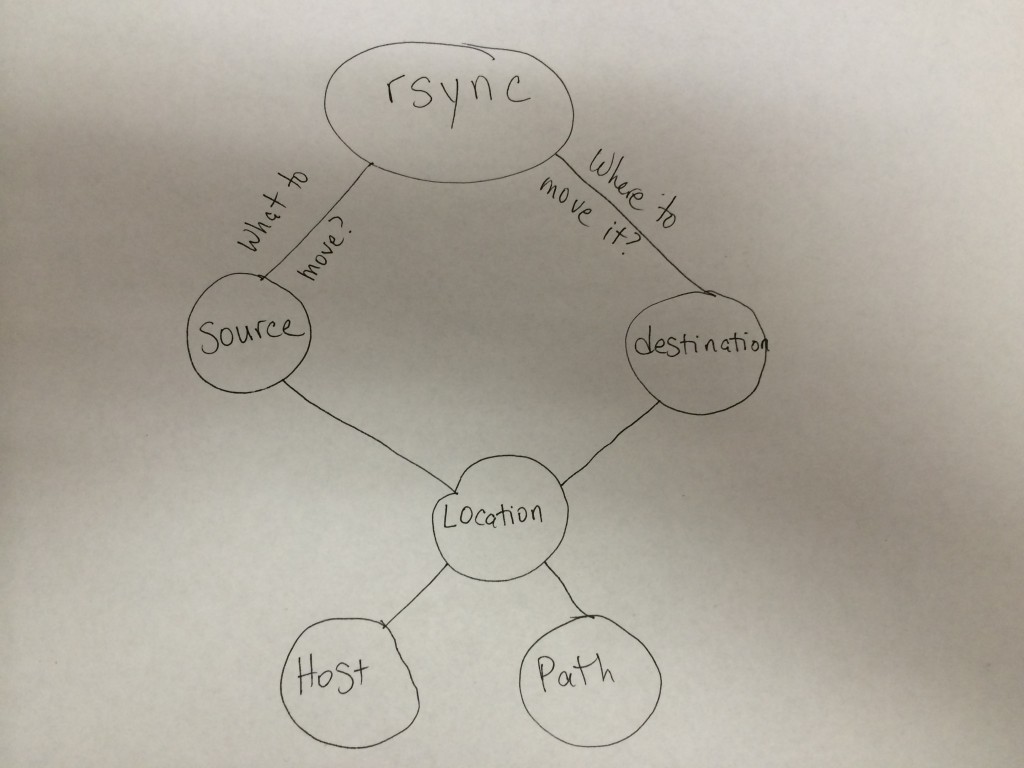 rsync
What to
move?
Where to
move it?
Source
destination
Location
Host
Path